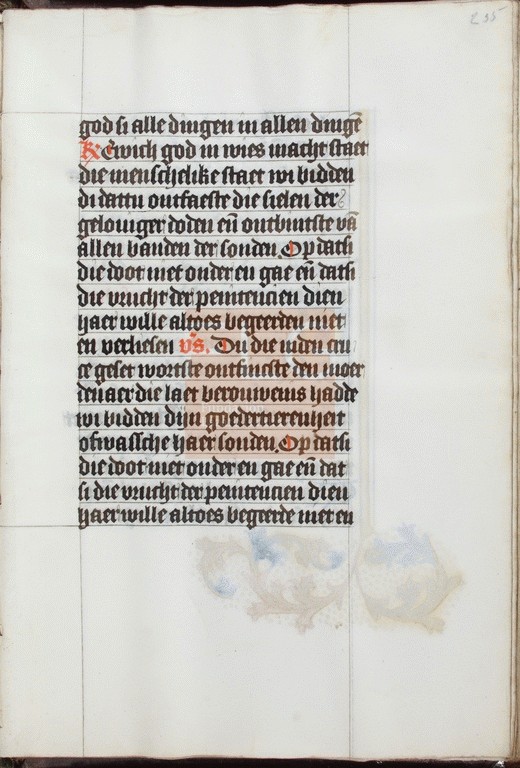 235
god si alle dingen in allen dingē
R̄ Ewich god in wies macht staet
die menschelike staet wi bidden
di dattu ontfaeste die sielen der
geloviger doden eñ ontbintste vā
allen banden der sonden. Op datsi
die doot niet onder en gae eñ datsi
die vrucht der penitencien dien
haer wille altoes begeerden niet
en verliesen vs̄. Du die inden cru
ce geset wortste ontfincste den moer
denaer die laet berouwenis hadde
wi bidden dijn goedertierenheit
ofwassche haer sonden. Op datsi
die doot niet onder en gae eñ dat
si die vrucht der penitencien dien
haer wille altoes begeerde niet en